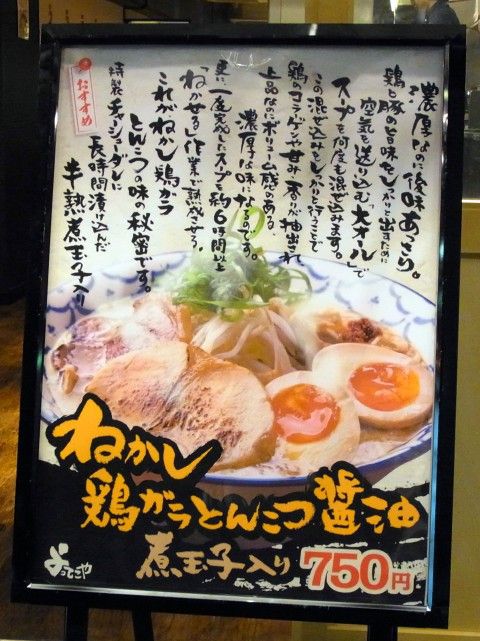 濃厚なのに後味あっさり。
鶏と豚の旨味をしっかりと出すために
空気を送り込む「大オール」で
スープを何度も混ぜ込みます。
この混ぜ込みをしっかりと行うことで
鶏のコラーゲンや甘み、香りが抽出され
上品なのにボリューム感のある、
濃厚な味になるのです。
更に一度完成したスープを約6時間以上
「ねかせる」作業で熟成させる。
これが、ねかし鶏ガラ
とんこつの味の秘密です。
特製チャーシューダレに
長時間漬け込んだ
半熟煮玉子入り
おすすめ
ねかし
鶏ガラとんこつ醤油
煮玉子入り 750円
よってこや